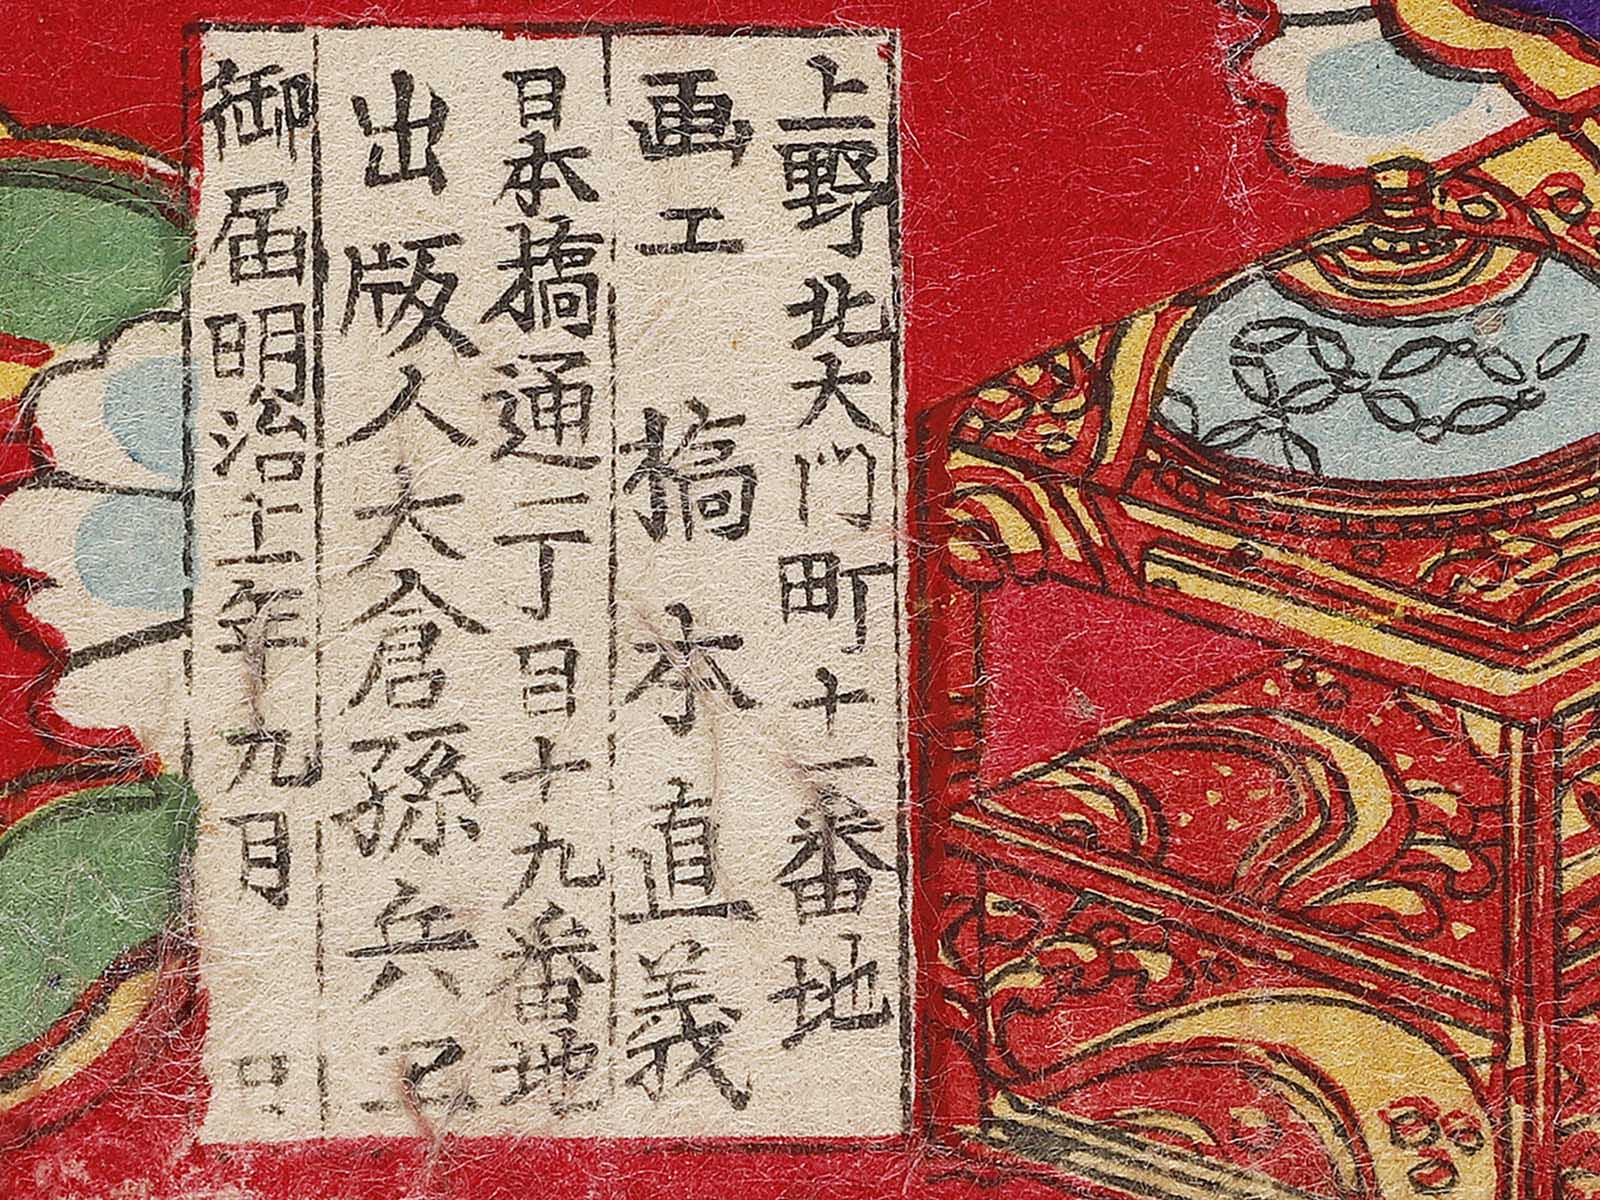 上野北大門町十一番地
画工 橋本直義
日本橋通一丁目十九番地
出版人大倉孫兵卫
御届明治十一年九月 日